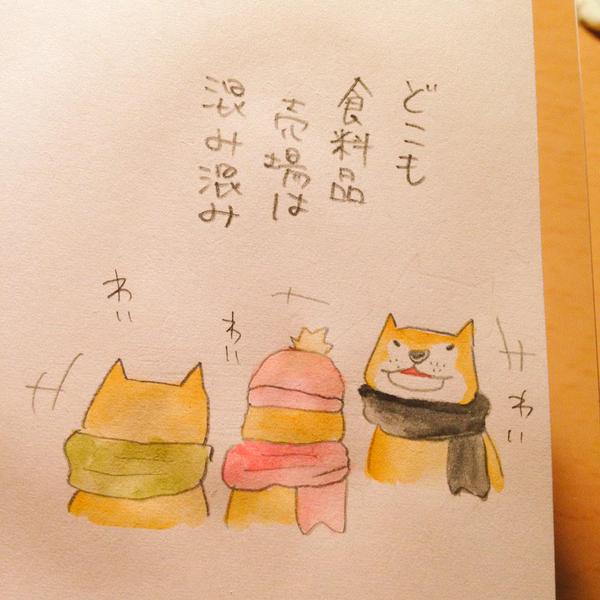 どこも
食料品
売場は
混み混み
わぃ
わぃ
わぃ